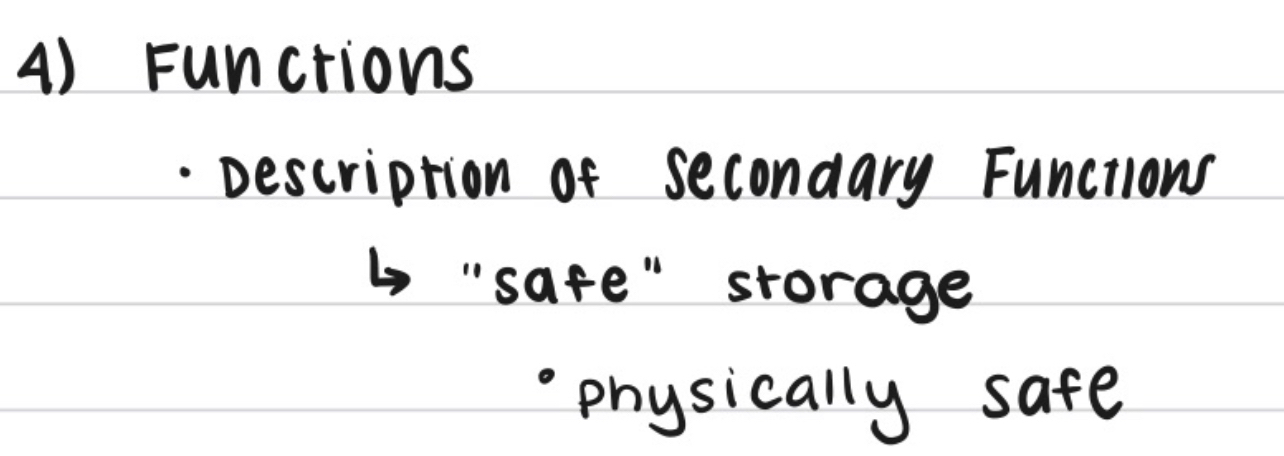 4) Functions
· Description of Secondary Functions
↳ "safe" storage
• physically safe